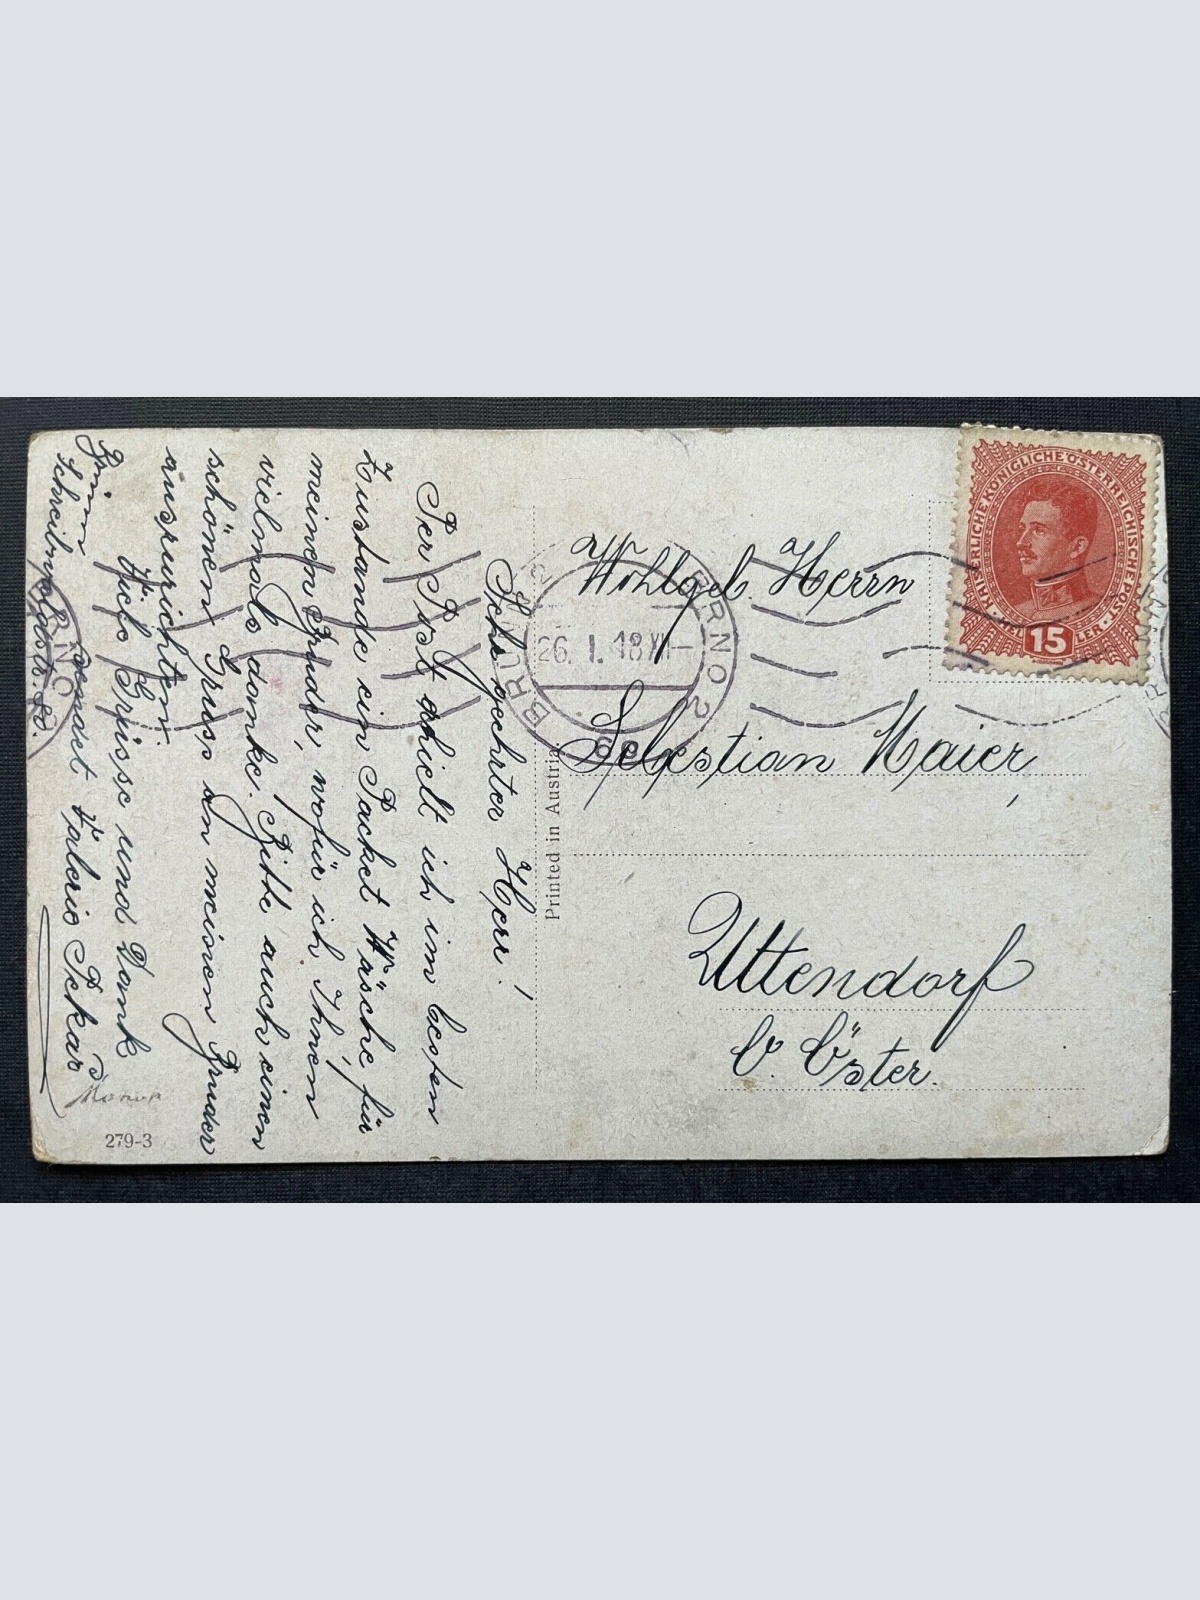 Sehr geehrter Herr!
Per Post erhielt ich im besten
Zustande ein Packet Wäsche für
meinen Bruder, wofür ich Ihnen
vielmals danke. Bitte auch einen
schönen Gruss an meinen Bruder
auszurichten.
Viele Grüsse und Dank
sendet Valerie Pekar
Brünn
Printed in Austria
279-3
KAISERLICHE KÖNIGLICHE ÖSTERREICHISCHE POST
15
BRÜNN 2 BRNO 2
26. I. 18 XII–
Wohlgeb. Herrn
Sebastian Maier,
Uttendorf
O. Öster.